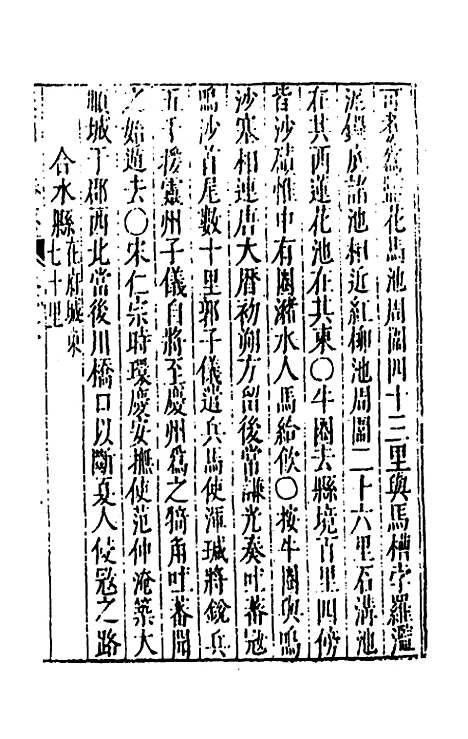 可煮為鹽花馬池周圍四十三里與馬槽孛羅濫
泥鍋底諸池相近紅柳池周圍二十六里石溝池
在其西蓮花池在其東〇牛圈去縣境百里四傍
皆沙磧惟中有圈瀦水人馬給飲〇按牛圈與鳴
沙寨相連唐大曆初朔方留後常謙光奏吐蕃寇
鳴沙首尾數十里郭子儀遣兵馬使渾瑊將銳兵
五千援靈州子儀自將至慶州為之猗角吐蕃聞
之始遁去〇宋仁宗時環慶安撫使范仲淹築大
順城于郡西北當後川橋口以斷夏人侵寇之路
合水縣在府城東七十里